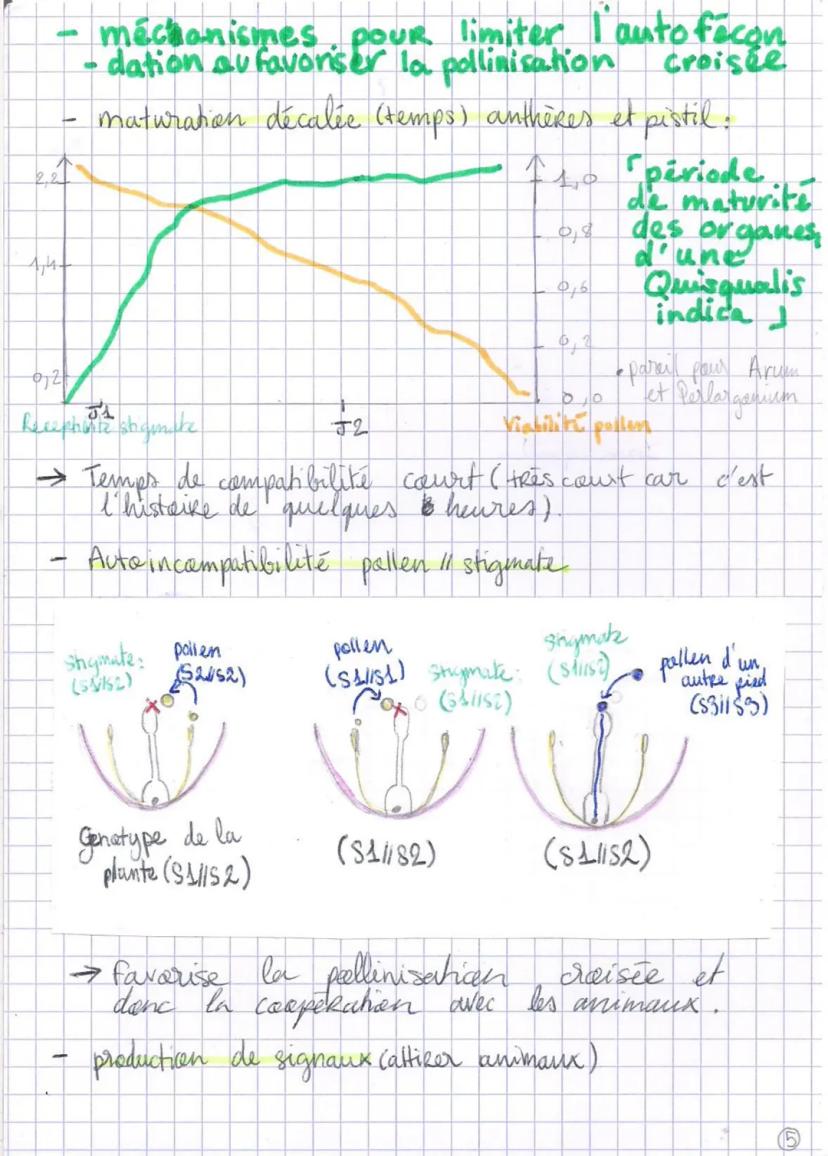 - méchanismes pour limiter l'autofécon
- dation ou favoriser la pollinisation croisée
- maturation décalée (temps) anthères et pistil :
2,2
1,4
0,2
1,0
0,8
0,6
0,2
0,0
J1
J2
Receptivité stigmate
Viabilité pollen
「 période
de maturité
des organes
d'une
Quisqualis
indica 」
• pareil pour Arum
et Perlargonium
→ Temps de compatibilité court (très court car c'est
l'histoire de quelques heures).
- Autoincompatibilité pollen // stigmate
stigmate:
(S1//S2)
pollen
(S2//S2)
Génotype de la
plante (S1//S2)
pollen
(S1//S1)
stigmate:
(S1//S2)
(S1//S2)
stigmate
(S1//S2)
pollen d'un
autre pied
(S3//S3)
(S1//S2)
→ favorise la pollinisation croisée et
donc la coopération avec les animaux.
- production de signaux (attirer animaux)
5